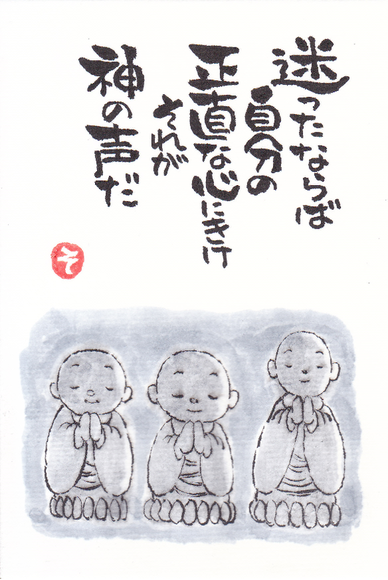 迷ったならば
自分の
正直な心にきけ
それが
神の声だ
そ